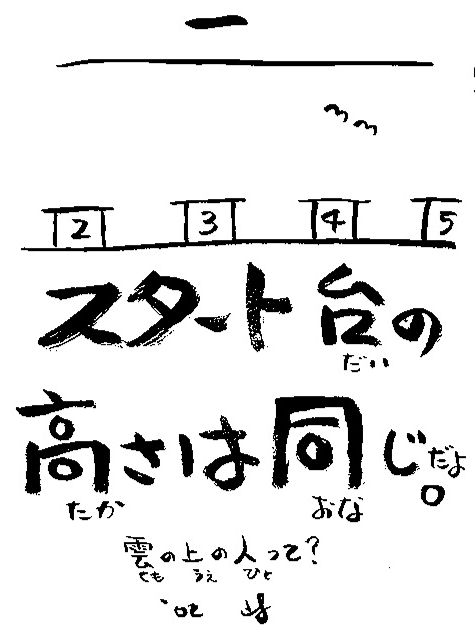 一
2 3 4 5
スタート台の
だい
高さは同じだよ。
たか おな
雲の上の人って?
くも うえ ひと
'02